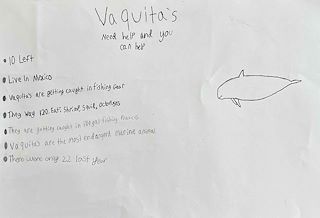 Vaquita's
Need help and you
can help
10 Left
Live In Mexico
Vaquita's are getting caught in fishing Gear
They Way 120. Eat: Shrimp, Squid, octopuses
They are getting caught in illegal fishing
Vaquita's are the most endangert marine animal
There were only 22 last year